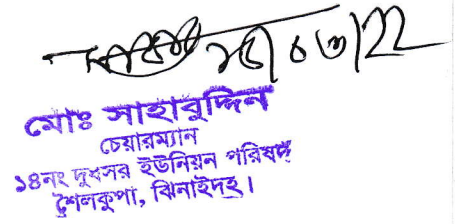 মোঃ সাহাবুদ্দিন
চেয়ারম্যান
১৪নং দুধসর ইউনিয়ন পরিষদ
শৈলকুপা, ঝিনাইদহ।